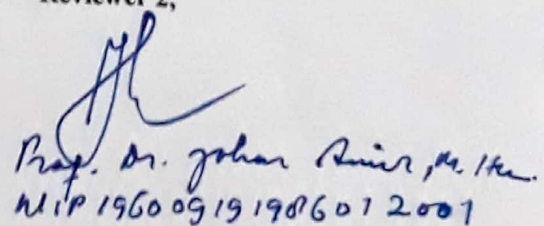 Reviewer 2,
Prof. Dr. Johar Amir, M. Hum.
NIP 196009191986012001